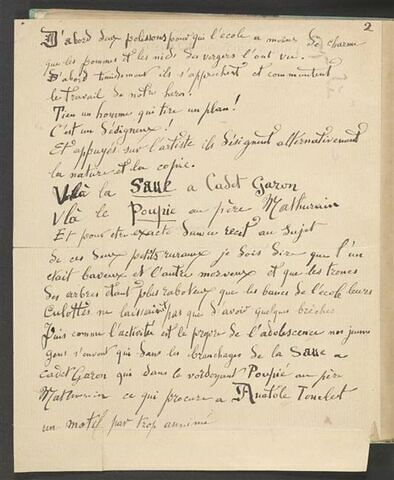 2
D'abord deux polissons pour qui l'école a moins de charme
que les pommes et les nids des vergers l'ont vu.
D'abord timidement ils s'approchent et commentent
le travail de notre hero.
Tien un homme qui tire un plan!
C'est un Désigneux!
Et appuyés sur l'artiste ils désignent alternativement
la nature et la copie.
V'là la Saule a Cadet Garon
V'là le Poupié au père Mathurin
Et pour être exacte dans ce récit au sujet
de ces deux petits ruraux je dois dire que l'un
était baveux et l'autre morveux et que les troncs
des arbres étant plus raboteux que les bancs de l'école leurs
culottes ne laissaient pas que d'avoir quelques brèches
Puis comme l'activité est le propre de l'adolescence nos jeunes
gens s'envont qui dans les branchages de la Saule a
Cadet Garon qui dans le verdoyant Poupié au père
Mathurin ce qui procure a Anatole
un motif par trop animé